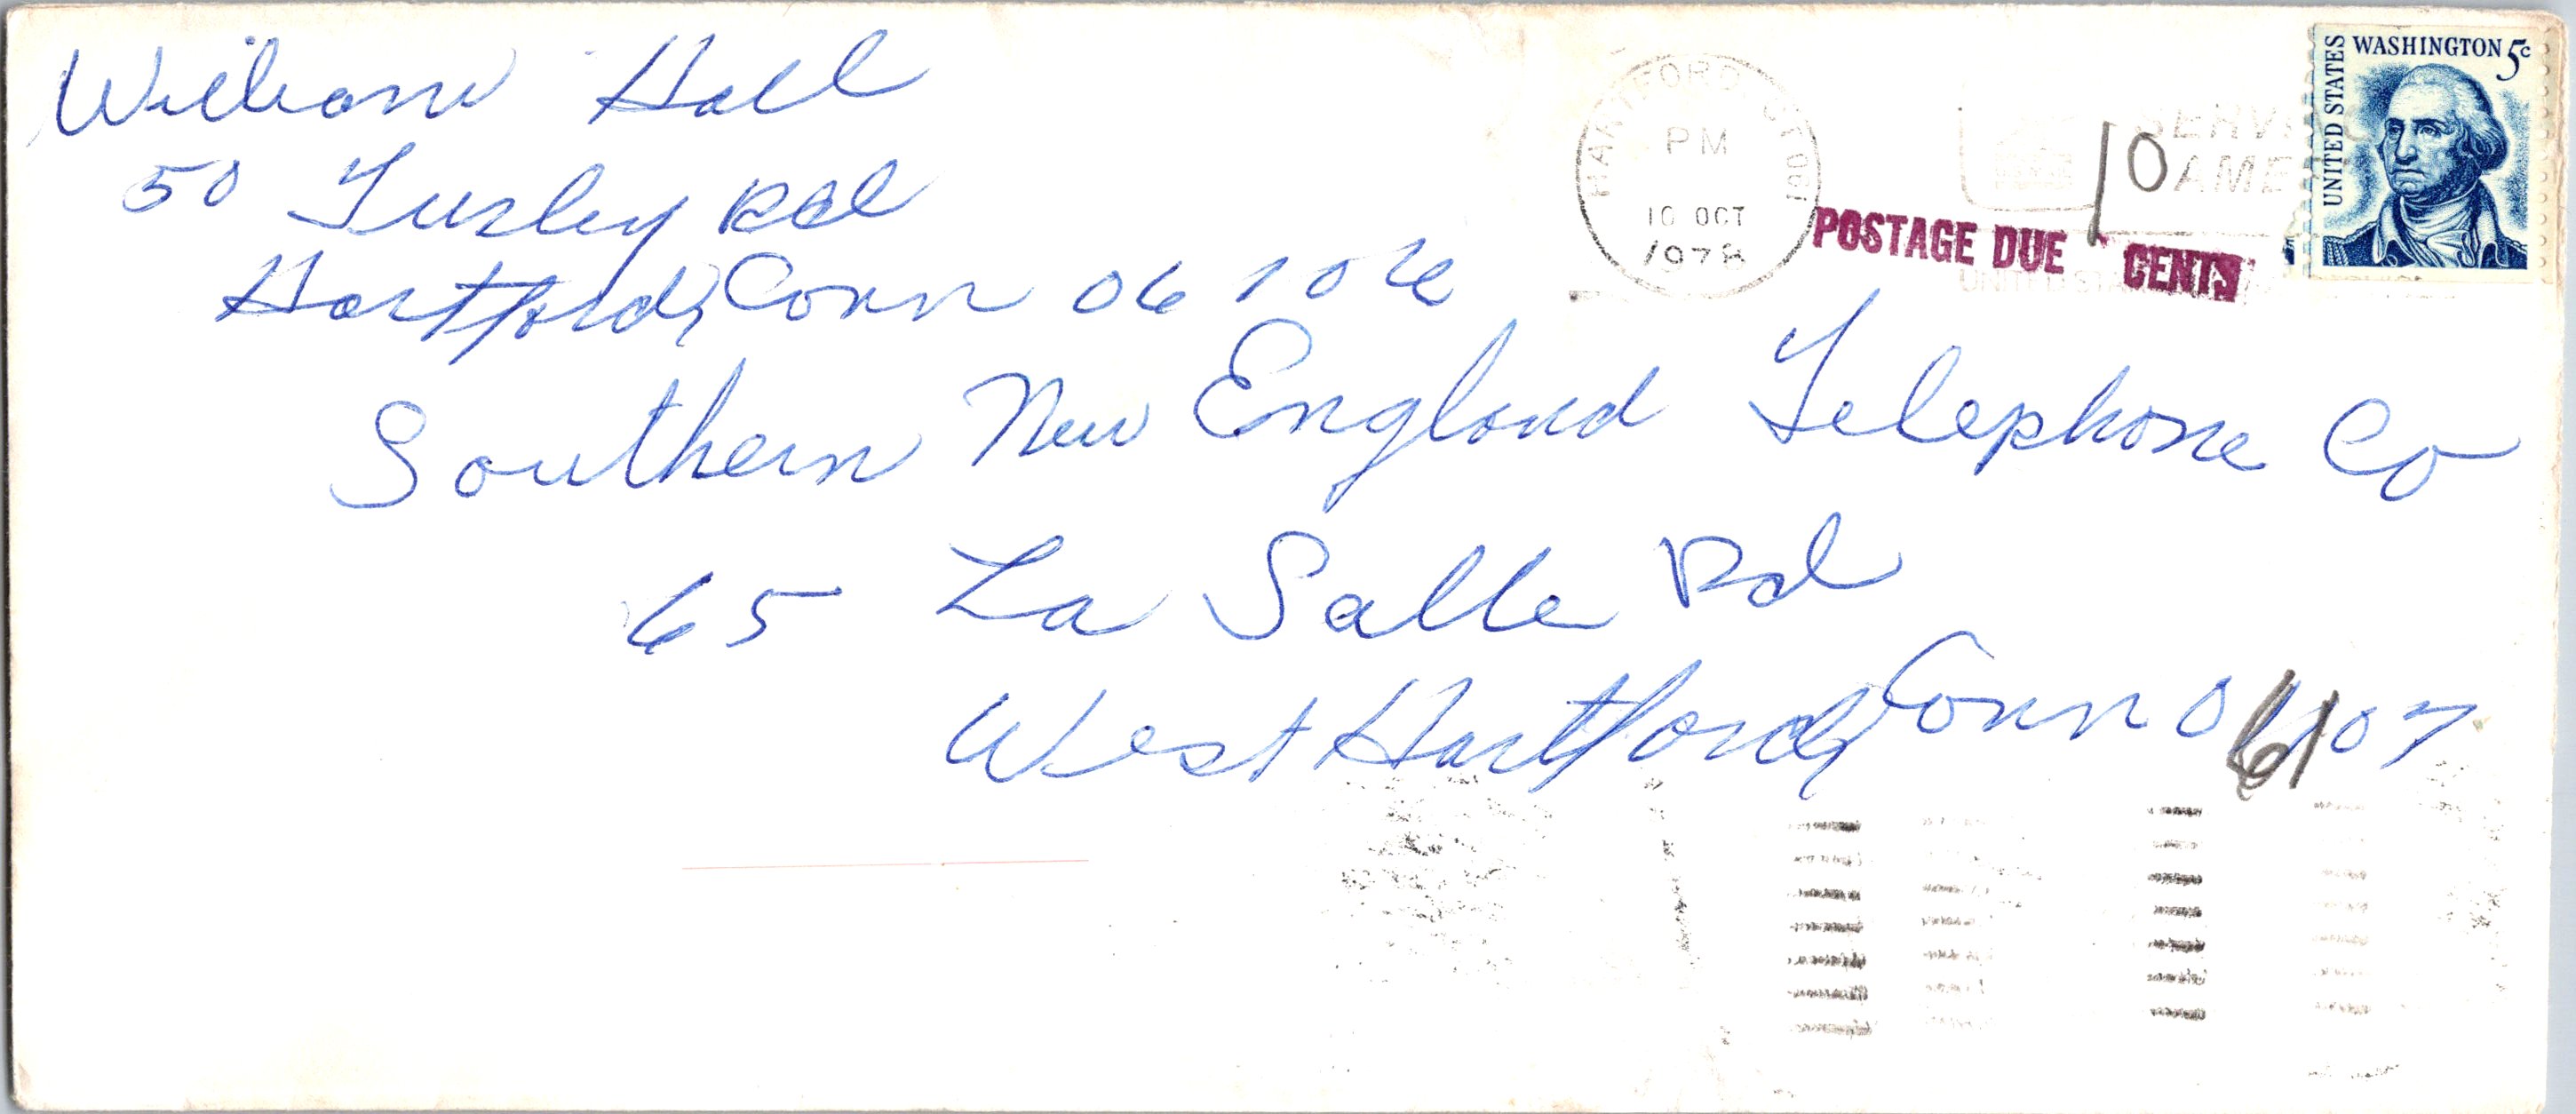 William Hall
50 Turley Rd
Hartford, Conn 06106
HARTFORD CT 061
PM
10 OCT
1978
SERV
AME
UNITED STA
POSTAGE DUE 10 CENTS
UNITED STATES
WASHINGTON 5c
Southern New England Telephone Co
65 La Salle Rd
West Hartford, Conn 06107